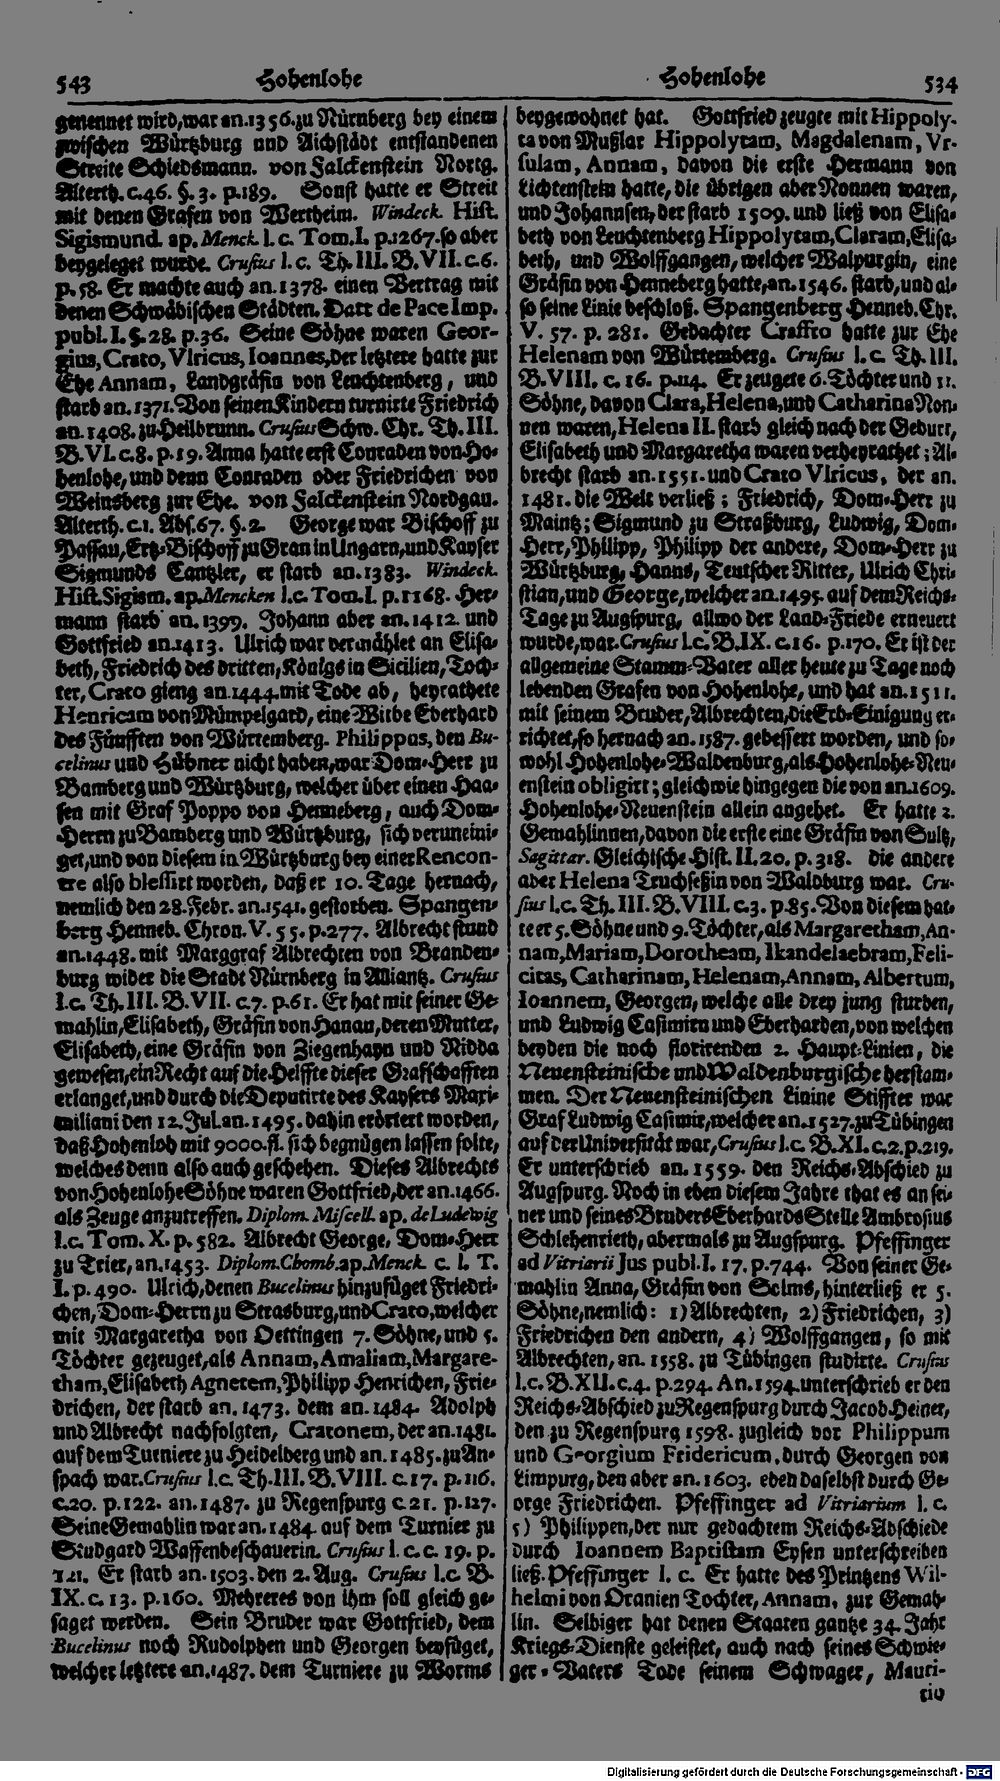 543 Hohenlohe
Hohenlohe 534
genennet wird, war an. 1356. zu Nürnberg bey einem
zwischen Würtzburg und Aichstädt entstandenen
Streite Schiedsmann. von Falckenstein Nortg.
Alterth. c. 46. §. 3. p. 189. Sonst hatte er Streit
mit denen Grafen von Wertheim. Windeck. Hist.
Sigismund. ap. Menck. l. c. Tom. I. p. 1267. so aber
beygeleget wurde. Crusius l. c. Th. III. B. VII. c. 6.
p. 58. Er machte auch an. 1378. einen Vertrag mit
denen Schwäbischen Städten. Datt de Pace Imp.
publ. I. §. 28. p. 36. Seine Söhne waren Geor-
gius, Crato, Vlricus, Ioannes, der letztere hatte zur
Ehe Annam, Landgräfin von Leuchtenberg, und
starb an. 1371. Von seinen Kindern turnirte Friedrich
an. 1408. zu Heilbrunn. Crusius Schw. Chr. Th. III.
B. VI. c. 8. p. 19. Anna hatte erst Conraden von Ho-
henlohe, und denn Conraden oder Friedrichen von
Weinsberg zur Ehe. von Falckenstein Nordgau.
Alterth. c. 1. Abs. 67. §. 2. George war Bischoff zu
Passau, Ertz-Bischoff zu Gran in Ungarn, und Kayser
Sigmunds Cantzler, er starb an. 1383. Windeck.
Hist. Sigism. ap. Mencken l. c. Tom. I. p. 1168. Her-
mann starb an. 1399. Johann aber an. 1412. und
Gottfried an. 1413. Ulrich war vermählet an Elisa-
beth, Friedrich des dritten, Königs in Sicilien, Toch-
ter, Crato gieng an. 1444. mit Tode ab, heyrathete
Henricam von Mümpelgard, eine Witbe Eberhard
des Fünfften von Würtemberg. Philippus, den Bu-
celinus und Hübner nicht haben, war Dom-Herr zu
Bamberg und Würtzburg, welcher über einen Haa-
sen mit Graf Poppo von Henneberg, auch Dom-
Herrn zu Bamberg und Würtzburg, sich veruneini-
get, und von diesem in Würtzburg bey einer Rencon-
tre also blessirt worden, daß er 10. Tage hernach,
nemlich den 28. Febr. an. 1541. gestorben. Spangen-
berg Henneb. Chron. V. 55. p. 277. Albrecht stund
an. 1448. mit Marggraf Albrechten von Branden-
burg wider die Stadt Nürnberg in Alliantz. Crusius
l. c. Th. III. B. VII. c. 7. p. 61. Er hat mit seiner Ge-
mahlin, Elisabeth, Gräfin von Hanau, deren Mutter,
Elisabeth, eine Gräfin von Ziegenhayn und Nidda
gewesen, ein Recht auf die Helffte dieser Grafschafften
erlanget, und durch die Deputirte des Kaysers Maxi-
miliani den 12. Jul. an. 1495. dahin erörtert worden,
daß Hohenloh mit 9000. fl. sich begnügen lassen solte,
welches denn also auch geschehen. Dieses Albrechts
von Hohenlohe Söhne waren Gottfried, der an. 1466.
als Zeuge anzutreffen. Diplom. Miscell. ap. de Ludewig
l. c. Tom. X. p. 582. Albrecht George, Dom-Herr
zu Trier, an. 1453. Diplom. Chomb. ap. Menck. c. l. T.
I. p. 490. Ulrich, denen Bucelinus hinzufüget Friedri-
chen, Dom-Herrn zu Strasburg, und Crato, welcher
mit Margaretha von Oettingen 7. Söhne, und 5.
Töchter gezeuget, als Annam, Amaliam, Margare-
tham, Elisabeth Agnetem, Philipp Henrichen, Frie-
drichen, der starb an. 1473. dem an. 1484. Adolph
und Albrecht nachfolgten, Cratonem, der an. 1481.
auf dem Turniere zu Heidelberg und an. 1485. zu An-
spach war. Crusius l. c. Th. III. B. VIII. c. 17. p. 116.
c. 20. p. 122. an. 1487. zu Regenspurg c. 21. p. 127.
Seine Gemahlin war an. 1484. auf dem Turnier zu
Studgard Waffenbeschauerin. Crusius l. c. c. 19. p.
121. Er starb an. 1503. den 2. Aug. Crusius l. c. B.
IX. c. 13. p. 160. Mehreres von ihm soll gleich ge-
saget werden. Sein Bruder war Gottfried, dem
Bucelinus noch Rudolphen und Georgen beyfüget,
welcher letztere an. 1487. dem Turniere zu Worms
beygewohnet hat. Gottfried zeugte mit Hippoly-
ta von Mußlar Hippolytam, Magdalenam, Vr-
sulam, Annam, davon die erste Hermann von
Lichtenstein hatte, die übrigen aber Nonnen waren,
und Johannsen, der starb 1509. und ließ von Elisa-
beth von Leuchtenberg Hippolytam, Claram, Elisa-
beth, und Wolffgangen, welcher Walpurgin, eine
Gräfin von Henneberg hatte, an. 1546. starb, und al-
so seine Linie beschloß. Spangenberg Henneb. Chr.
V. 57. p. 281. Gedachter Craffto hatte zur Ehe
Helenam von Würtemberg. Crusius l. c. Th. III.
B. VIII. c. 16. p. 114. Er zeugete 6. Töchter und 11.
Söhne, davon Clara, Helena, und Catharina Non-
nen waren, Helena II. starb gleich nach der Geburt,
Elisabeth und Margaretha waren verheyrathet; Al-
brecht starb an. 1551. und Crato Vlricus, der an.
1481. die Welt verließ; Friedrich, Dom-Herr zu
Maintz; Sigmund zu Straßburg, Ludwig, Dom-
Herr, Philipp, Philipp der andere, Dom-Herr zu
Würtzburg, Hanns, Teutscher Ritter, Ulrich Chri-
stian, und George, welcher an. 1495. auf dem Reichs-
Tage zu Augspurg, allwo der Land-Friede erneuert
wurde, war. Crusius l. c. B. IX. c. 16. p. 170. Er ist der
allgemeine Stamm-Vater aller heute zu Tage noch
lebenden Grafen von Hohenlohe, und hat an. 1511.
mit seinem Bruder, Albrechten, die Erb-Einigung er-
richtet, so hernach an. 1587. gebessert worden, und so-
wohl Hohenlohe-Waldenburg, als Hohenlohe-Neu-
enstein obligirt; gleichwie hingegen die von an. 1609.
Hohenlohe-Neuenstein allein angehet. Er hatte 2.
Gemahlinnen, davon die erste eine Gräfin von Sultz,
Sagittar. Gleichische Hist. II. 20. p. 318. die andere
aber Helena Truchseßin von Waldburg war. Cru-
sius l. c. Th. III. B. VIII. c. 3. p. 85. Von diesem hat-
te er 5. Söhne und 9. Töchter, als Margaretham, An-
nam, Mariam, Dorotheam, Ikandelaebram, Feli-
citas, Catharinam, Helenam, Annam, Albertum,
Ioannem, Georgen, welche alle drey jung sturben,
und Ludwig Casimirn und Eberharden, von welchen
beyden die noch florirenden 2. Haupt-Linien, die
Neuensteinische und Waldenburgische herstam-
men. Der Neuensteinischen Linine Stiffter war
Graf Ludwig Casimir, welcher an. 1527. zu Tübingen
auf der Universität war, Crusius l. c. B. XI. c. 2. p. 219.
Er unterschrieb an. 1559. den Reichs-Abschied zu
Augspurg. Noch in eben diesem Jahre that es an sei-
ner und seines Bruders Eberhards Stelle Ambrosius
Schlehenrieth, abermals zu Augspurg. Pfeffinger
ad Vitriarii Jus publ. I. 17. p. 744. Von seiner Ge-
mahlin Anna, Gräfin von Solms, hinterließ er 5.
Söhne, nemlich: 1) Albrechten, 2) Friedrichen, 3)
Friedrichen den andern, 4) Wolffgangen, so mit
Albrechten, an. 1558. zu Tübingen studirte. Crusius
l. c. B. XII. c. 4. p. 294. An. 1594. unterschrieb er den
Reichs-Abschied zu Regenspurg durch Jacob Heiner,
den zu Regenspurg 1598. zugleich vor Philippum
und Georgium Fridericum, durch Georgen von
Limpurg, den aber an. 1603. eben daselbst durch Ge-
orge Friedrichen. Pfeffinger ad Vitriarium l. c.
5) Philippen, der nur gedachtem Reichs-Abschiede
durch Ioannem Baptistam Eysen unterschreiben
ließ. Pfeffinger l. c. Er hatte des Printzens Wil-
helmi von Oranien Tochter, Annam, zur Gemah-
lin. Selbiger hat denen Staaten gantze 34. Jahr
Kriegs-Dienste geleistet, auch nach seines Schwie-
ger-Vaters Tode seinem Schwager, Mauri-
tio
Digitalisierung gefördert durch die Deutsche Forschungsgemeinschaft - DFG